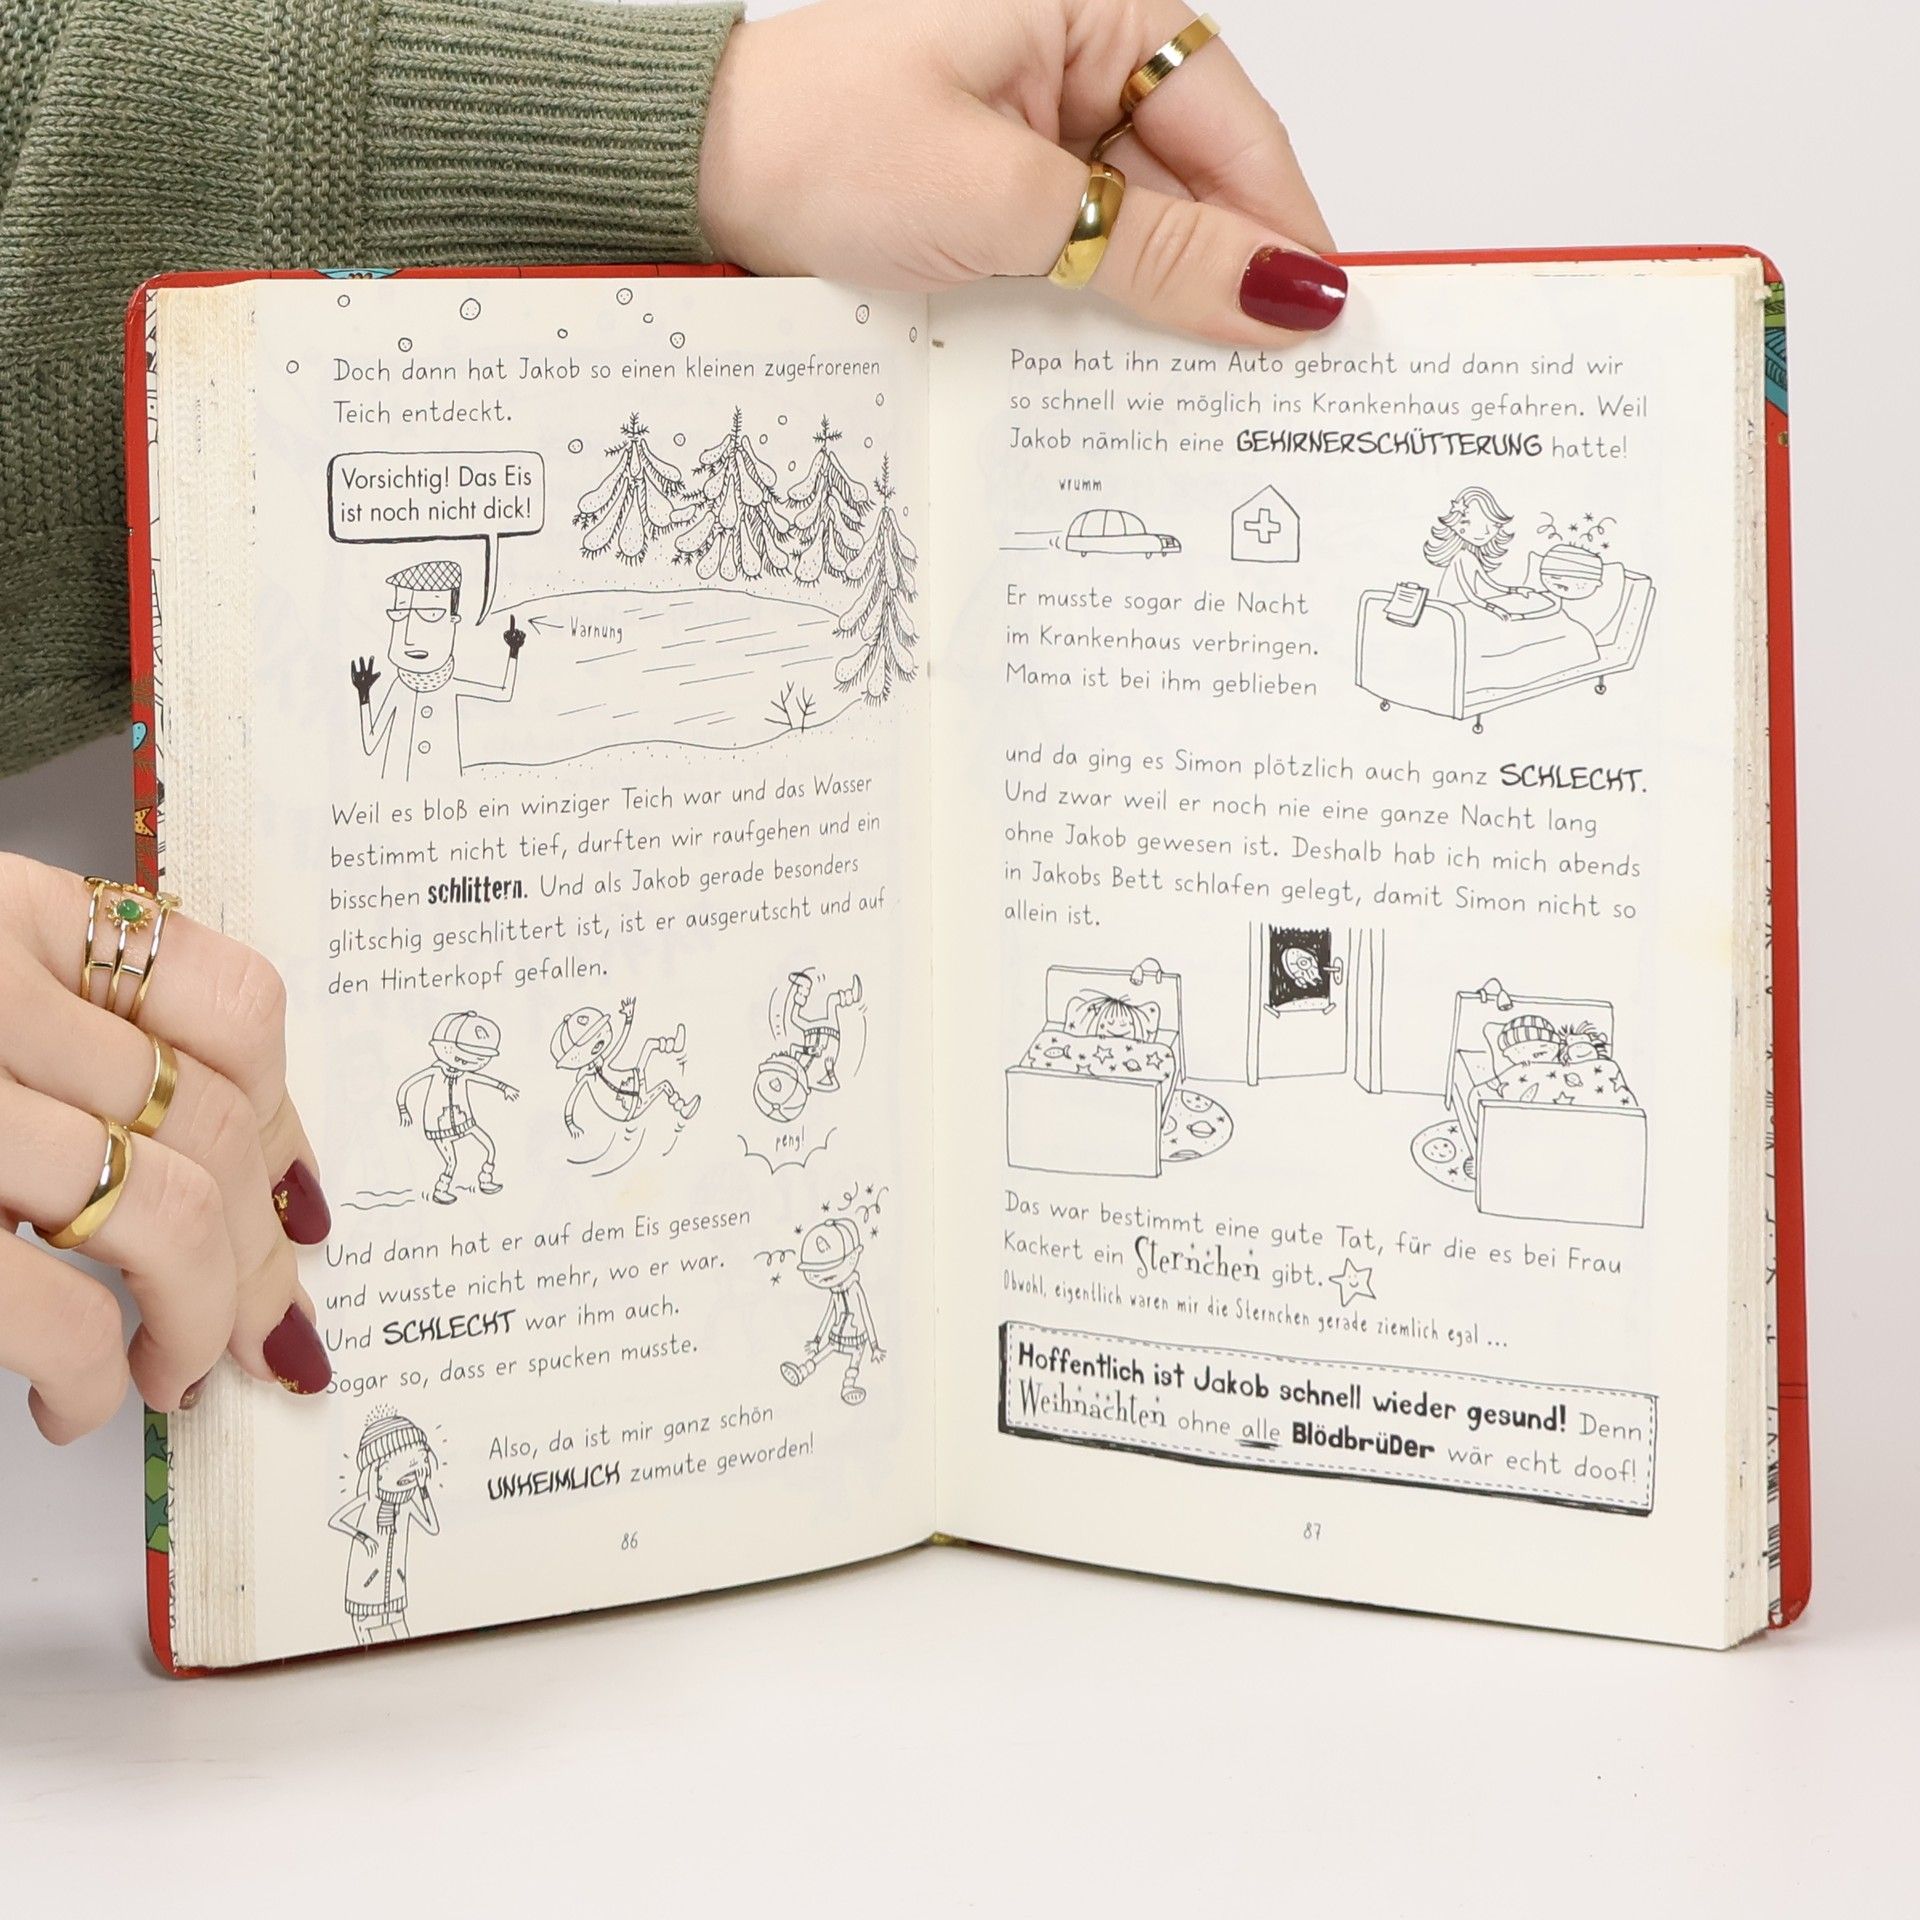 Doch dann hat Jakob so einen kleinen zugefrorenen
Teich entdeckt.
Vorsichtig! Das Eis
ist noch nicht dick!
Warnung
Weil es bloß ein winziger Teich war und das Wasser
bestimmt nicht tief, durften wir raufgehen und ein
bisschen schlittern. Und als Jakob gerade besonders
glitschig geschlittert ist, ist er ausgerutscht und auf
den Hinterkopf gefallen.
peng!
Und dann hat er auf dem Eis gesessen
und wusste nicht mehr, wo er war.
Und SCHLECHT war ihm auch.
Sogar so, dass er spucken musste.
Also, da ist mir ganz schön
UNHEIMLICH zumute geworden!
86
Papa hat ihn zum Auto gebracht und dann sind wir
so schnell wie möglich ins Krankenhaus gefahren. Weil
Jakob nämlich eine GEHIRNERSCHÜTTERUNG hatte!
wrumm
Er musste sogar die Nacht
im Krankenhaus verbringen.
Mama ist bei ihm geblieben
und da ging es Simon plötzlich auch ganz SCHLECHT.
Und zwar weil er noch nie eine ganze Nacht lang
ohne Jakob gewesen ist. Deshalb hab ich mich abends
in Jakobs Bett schlafen gelegt, damit Simon nicht so
allein ist.
Das war bestimmt eine gute Tat, für die es bei Frau
Kackert ein Sternchen gibt.
Obwohl, eigentlich waren mir die Sternchen gerade ziemlich egal ...
Hoffentlich ist Jakob schnell wieder gesund! Denn
Weihnachten ohne alle BlödbrüDer wär echt doof!
87